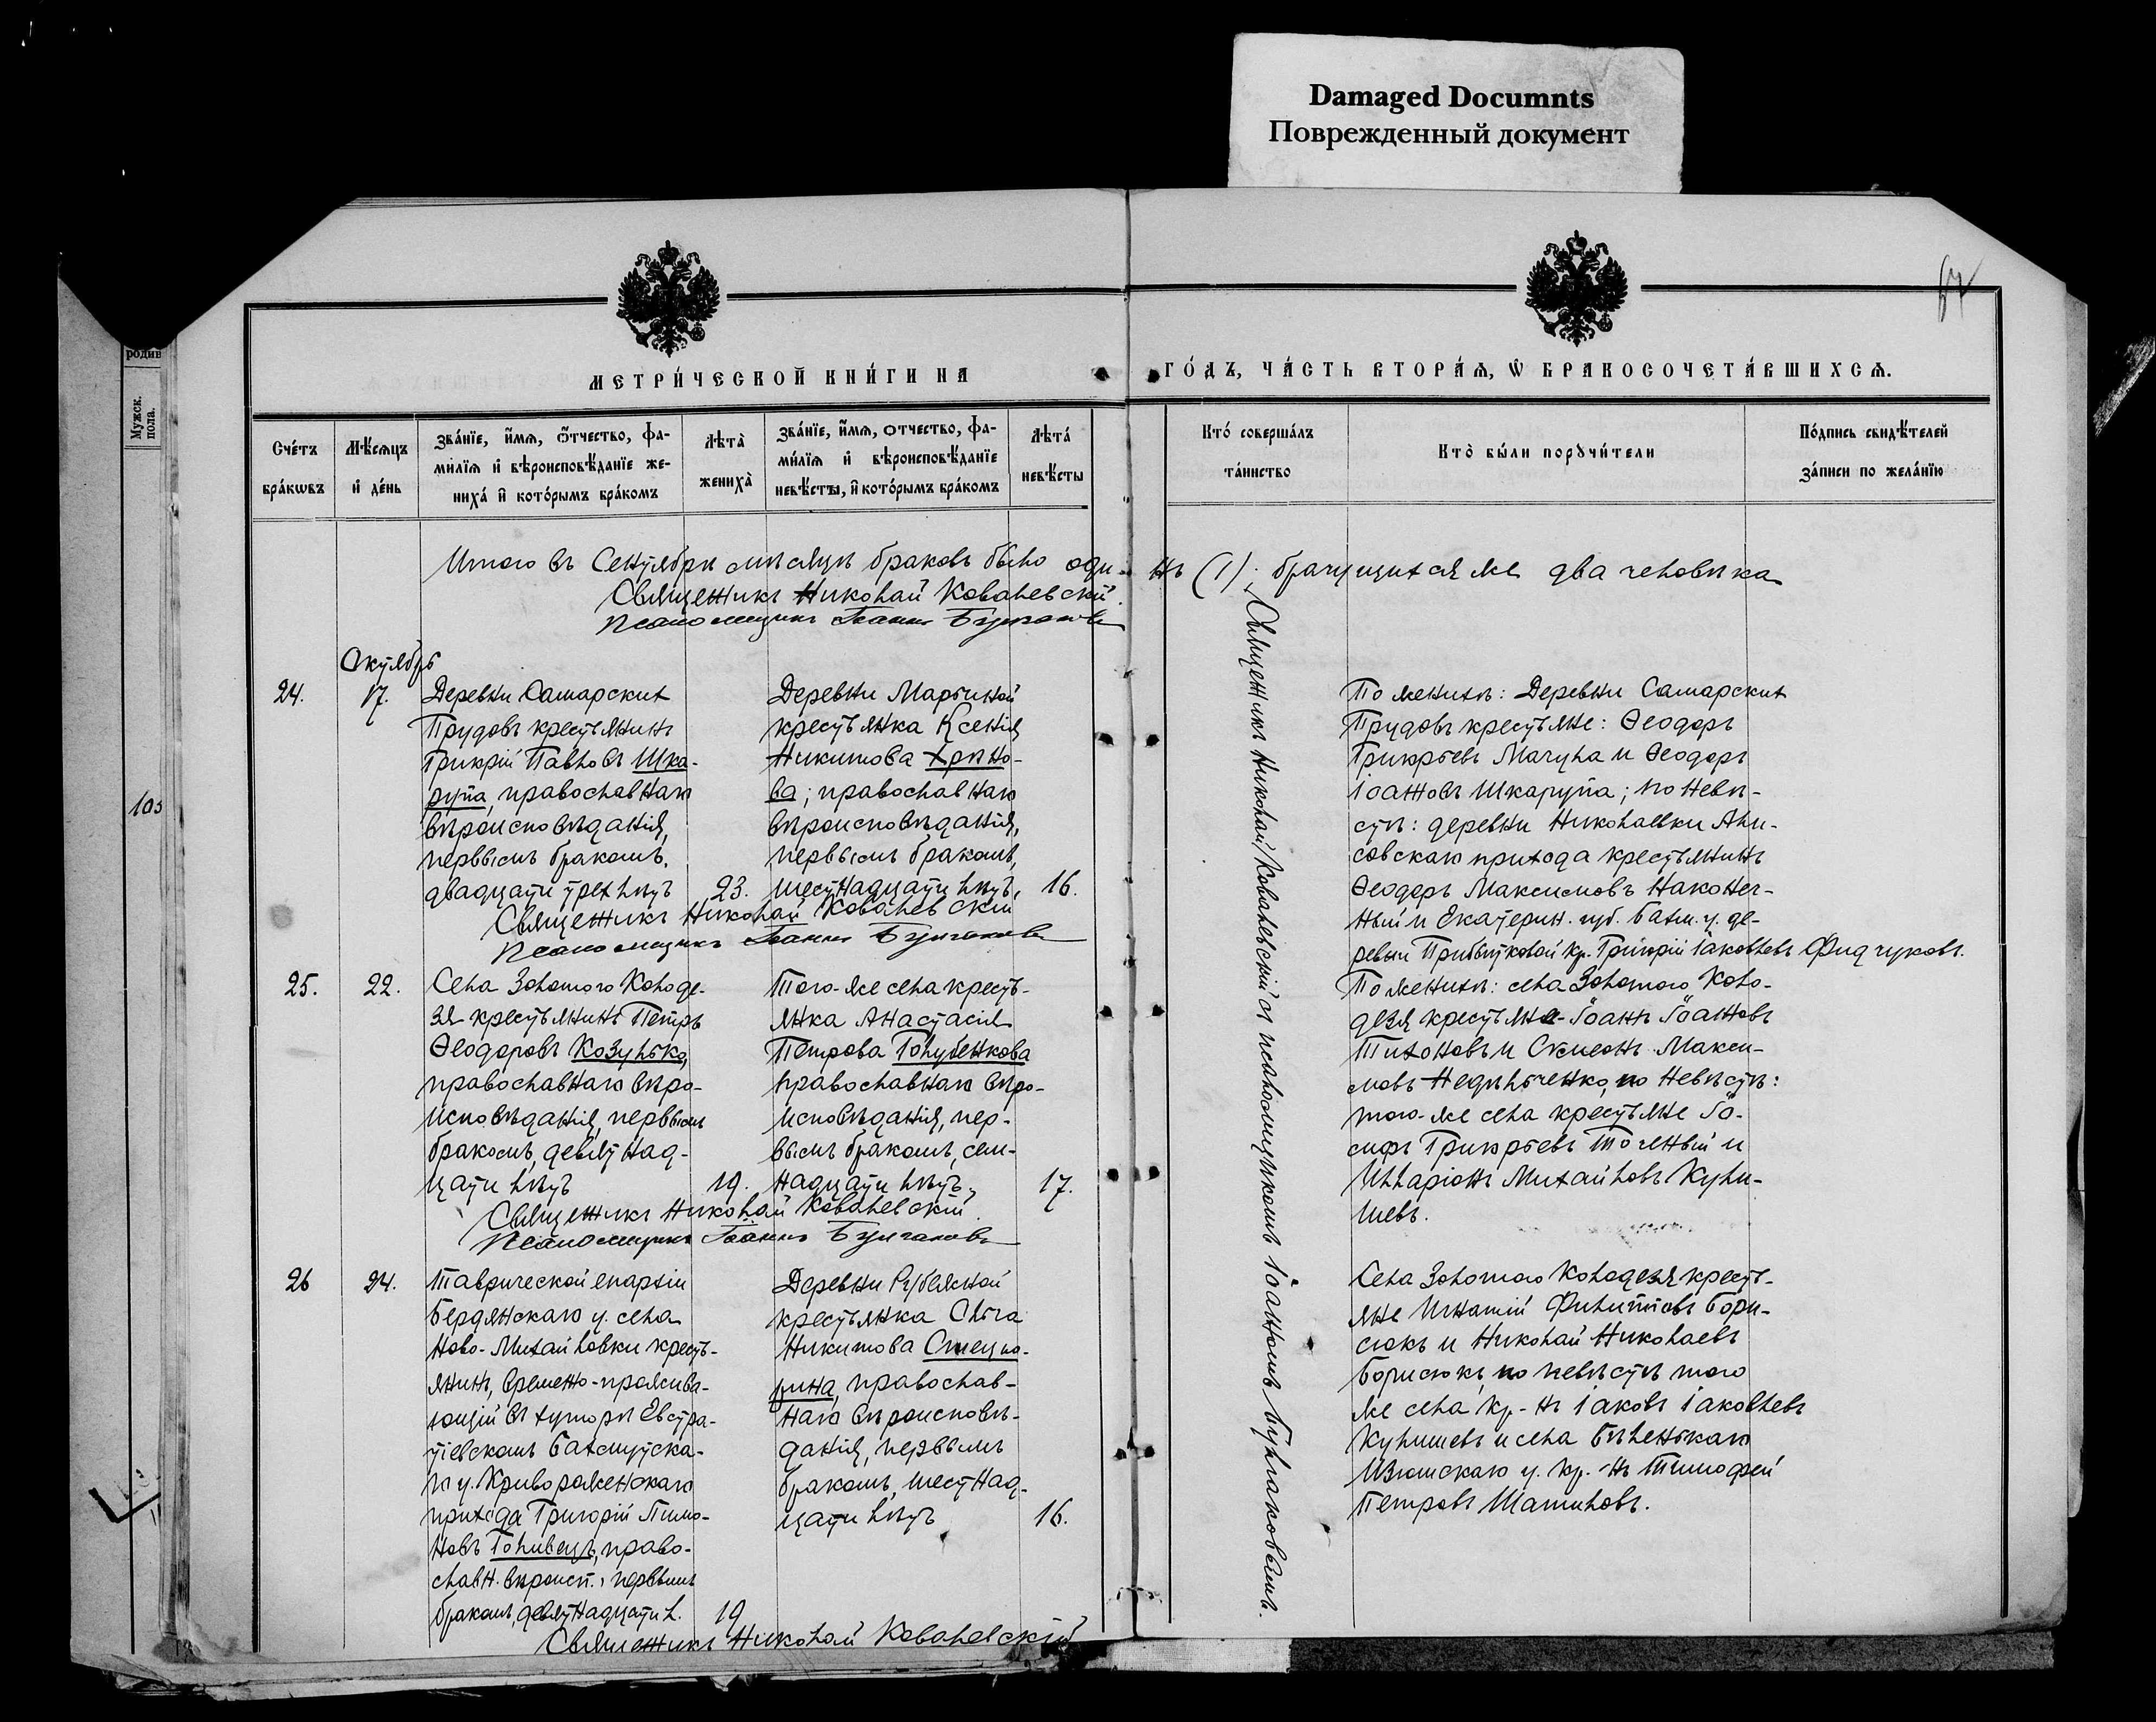 Damaged Documnts
Поврежденный документ
родив
Мужск.
пола.
103
МЕТРИ́ЧЕСКОЙ КНИ́ГИ НА
ГО́ДЪ, ЧА́СТЬ ВТОРА́Ѧ, Ѿ БРАКОСОЧЕТА́ВШИХСѦ.
Сче́тъ
бра́кѡвъ
Мѣ́сѧцъ
и҆ де́нь
Зва́нїе, и҆́мѧ, ѻ҆́тчество, фа-
ми́лїѧ и҆ вѣроисповѣ́данїе же-
ниха̀ и҆ кото́рымъ бра́комъ
Лѣ́та̀
жениха̀
Зва́нїе, и҆́мѧ, ѻтчество, фа-
ми́лїѧ и҆ вѣроисповѣ́данїе
невѣ́сты, и҆ кото́рымъ бра́комъ
Лѣ́та́
невѣ́сты
Кто́ соверша́лъ
та́инство
Кто̀ бы́ли порꙋчи́тели
По́дпись свидѣ́телей
за́писи по жела́нїю
Итого въ Сентябрѣ мѣсяцѣ браковъ было оди-
нъ (1); брачущихся же два человѣка
Священникъ Николай Ковалевскій.
Псаломщикъ Іоаннъ Булгаковъ
Октябрь
24.
17.
Деревни Самарскихъ
Прудовъ крестьянинъ
Григорій Павловъ Шка-
рупа, православнаго
вѣроисповѣданія,
первымъ бракомъ,
двадцати трехъ лѣтъ
23.
Деревни Марьиной
крестьянка Ксенія
Никитова Хрѣно-
ва; православнаго
вѣроисповѣданія,
первымъ бракомъ,
шестнадцати лѣтъ,
16.
Священникъ Николай Ковалевскій
Псаломщикъ Іоаннъ Булгаковъ
По женихѣ: Деревни Самарскихъ
Прудовъ крестьяне: Ѳеодоръ
Григорьевъ Мачула и Ѳеодоръ
Іоанновъ Шкарупа; по невѣ-
стѣ: деревни Николаевки Али-
совскаго прихода крестьянинъ
Ѳеодоръ Максимовъ Наконеч-
ный и Екатерин. губ. Бахм. у. де-
ревни Прибытковой кр. Григорій Іаковлевъ Фидчуковъ.
25.
22.
Села Золотого Колоде-
зя крестьянинъ Петръ
Ѳеодоровъ Козулько,
православнаго вѣро-
исповѣданія, первымъ
бракомъ, девятнад-
цати лѣтъ
19.
Того-же села кресть-
янка Анастасія
Петрова Голубенкова
православнаго вѣро-
исповѣданія, пер-
вымъ бракомъ, сем-
надцати лѣтъ,
17.
Священникъ Николай Ковалевскій.
Псаломщикъ Іоаннъ Булгаковъ
По женихѣ: села Золотого Коло-
дезя крестьяне Іоаннъ Іоанновъ
Тихоновъ и Симеонъ Макси-
мовъ Недѣльченко, по невѣстѣ:
того-же села крестьяне Іо-
сифъ Григорьевъ Точеный и
Илларіонъ Михайловъ Кули-
шевъ.
26
24.
Таврической епархіи
Бердянскаго у. села
Ново-Михайловки кресть-
янинъ, временно-прожива-
ющій въ хуторѣ Евстра-
тіевскомъ Бахмутска-
го у. Криворожскаго
прихода Григорій Пимо-
новъ Голивецъ, право-
славн. вѣроисп., первымъ
бракомъ, девятнадцати л.
19
Деревни Рубежной
крестьянка Ольга
Никитова
православ-
наго вѣроисповѣ-
данія, первымъ
бракомъ, шестнад-
цати лѣтъ
16.
Священникъ Николай Ковалевскій
Села Золотого Колодезя кресть-
яне Игнатій Филипповъ Бори-
сюкъ и Николай Николаевъ
Борисюкъ, по невѣстѣ того
же села кр-нъ Іаковъ Іаковлевъ
Кулишевъ и села Бѣленькаго
Изюмскаго у. кр.-нъ Тимофей
Петровъ Шатиловъ.
Священникъ Николай Ковалевскій съ псаломщикомъ Іоанномъ Булгаковымъ.